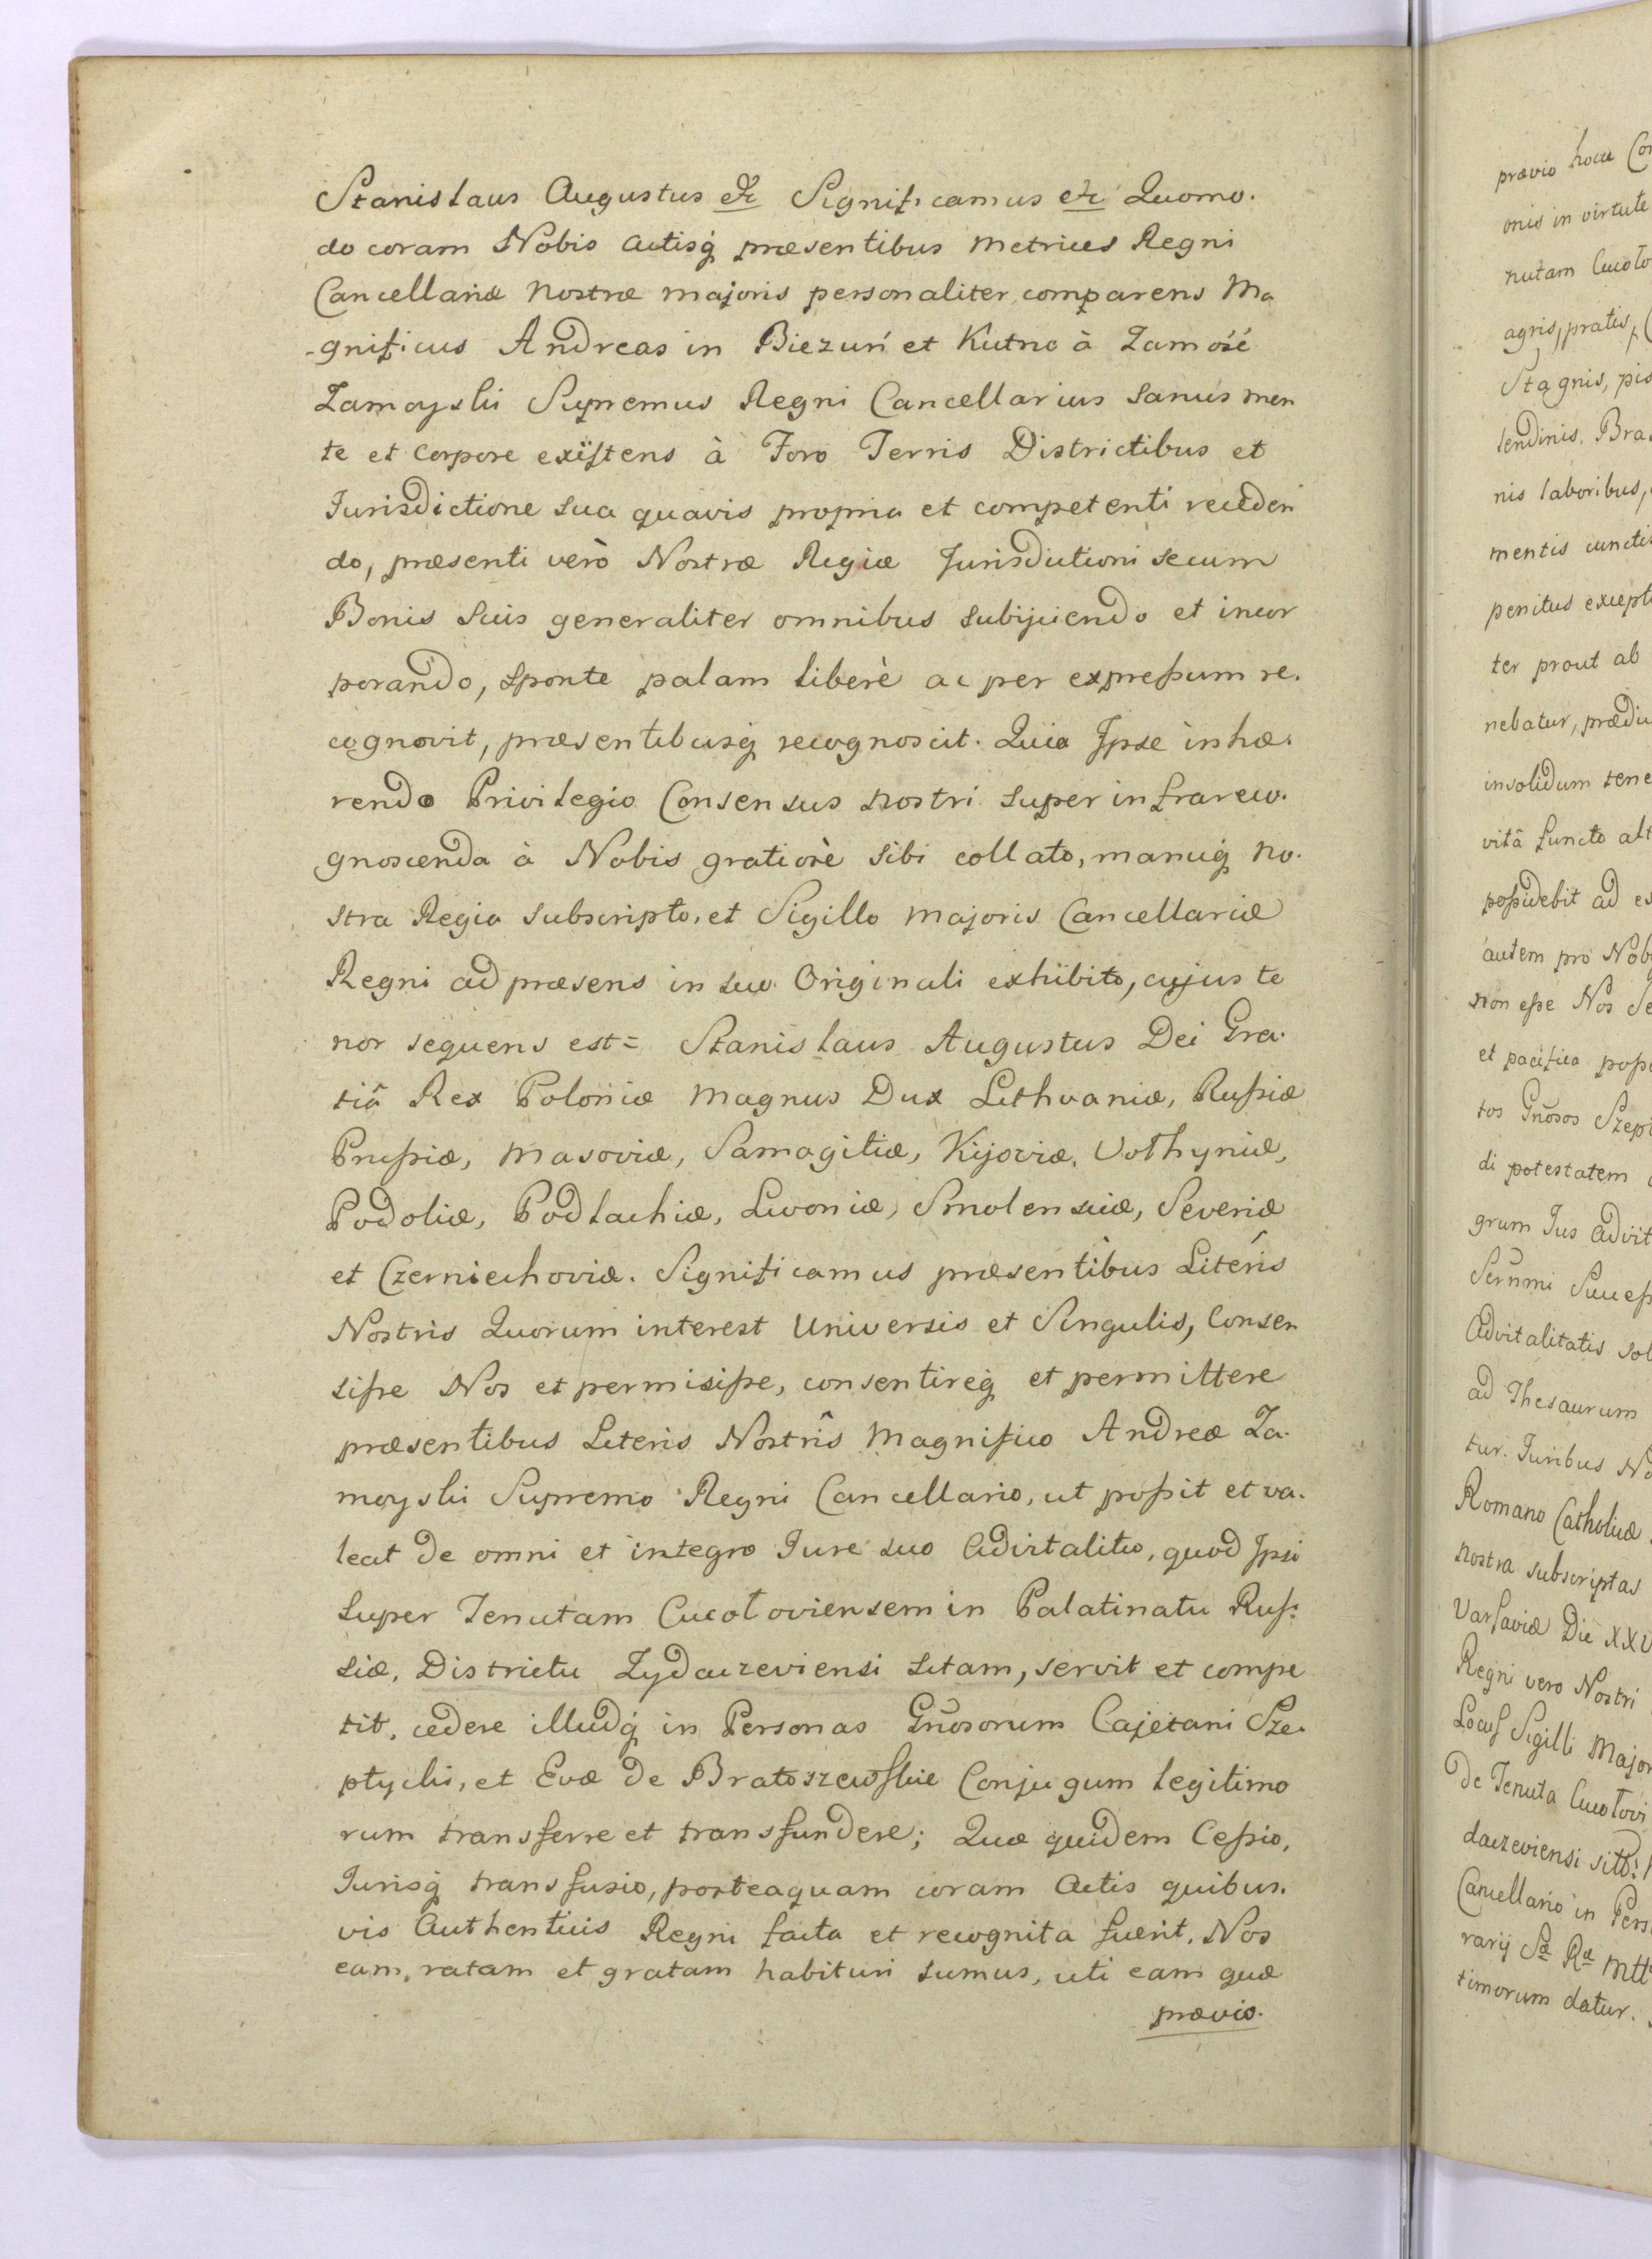 Stanislaus Augustus etc Significamus etc Quomo-
do coram Nobis Actisq præsentibus Metrices Regni
Cancellariæ Nostræ majoris personaliter comparens Ma
-gnificus Andreas in Biezuń et Kutno à Zamość
Zamoyski Supremus Regni Cancellarius Sanus men
te et Corpore exïstens à Foro Terris Districtibus et
Jurisdictione sua quavis propria et competenti receden
do, præsenti verò Nostræ Regiæ Jurisdictioni secum
Bonis Suis generaliter omnibus subijciendo et incor
porando, sponte palam liberè ac per expreßum re-
cognovit, præsentibusq recognoscit. Quia Ipse inhæ-
rendo Privilegio Consensus nostri super infrareco-
gnoscenda à Nobis gratiosè sibi collato, manuq no-
stra Regia subscripto, et Sigillo majoris Cancellariæ
Regni ad præsens in suo Originali exhibito, cujus te
nor sequens est= Stanislaus Augustus Dei Gra-
tiâ Rex Poloniæ Magnus Dux Lithvaniæ, Rußiæ
Prußiæ, Masoviæ, Samogitiæ, Kijoviæ, Volhyniæ,
Podoliæ, Podlachiæ, Livoniæ, Smolensciæ, Severiæ
et Czerniechoviæ. Significamus præsentibus Literis
Nostris Quorum interest Universis et Singulis, Consen
sißse Nos et permisiße, consentireq et permittere
præsentibus Literis Nostris Magnifico Andreæ Za-
moyski Supremo Regni Cancellario, ut poßit et va-
leat de omni et integro Jure suo Advitalitio, quod Ipsi
super Tenutam Cucołoviensem in Palatinatu Rus-
siæ, Districtu Zydaczeviensi sitam, servit et compe
tit, cedere illudq in Personas Gñosorum Cajetani Sze-
ptycki, et Evæ de Bratoszewskie Conjugum legitimo
rum transferre et transfundere; Quæ quidem Ceßio,
Jurisq transfusio, posteaquam coram Actis quibus-
vis Authenticis Regni facta et recognita fuerit, Nos
eam, ratam et gratam habituri sumus, uti eam quæ
prævio-
prævio hocce
onis in virtute
nutam
agris, pratis,
Stagnis,
nis laboribus,
mentis
penitus
ter prout ab
nebatur,
insolidum
vitâ functo
poßidebit ad
autem pro
non eße Nos
et pacifica
tos Gñosos
di potestatem
grum Jus
Advitalitatis
ad Thesaurum
tur. Juribus
Romano Catholicæ
nostra subscriptas
Varsaviæ Die
Regni vero Nostri
Locus Sigilli
De Tenuta
daczeviensi
Cancellario in
timorum datur.